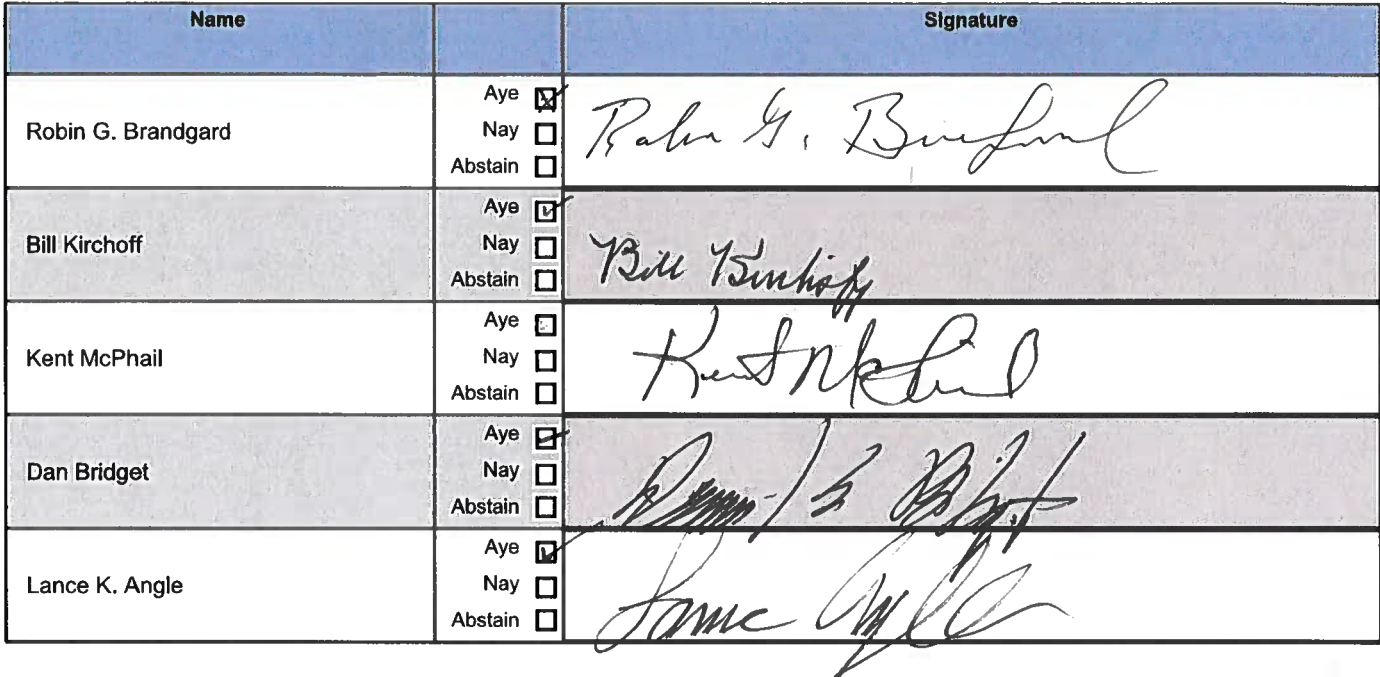 Name Signature
Robin G. Brandgard
Aye ☒
Nay ☐
Abstain ☐
Robin G. Brandgard
Bill Kirchoff
Aye ☑
Nay ☐
Abstain ☐
Bill Kirchoff
Kent McPhail
Aye ☐
Nay ☐
Abstain ☐
Kent McPhail
Dan Bridget
Aye ☑
Nay ☐
Abstain ☐
Lance K. Angle
Aye ☑
Nay ☐
Abstain ☐
Lance Angle